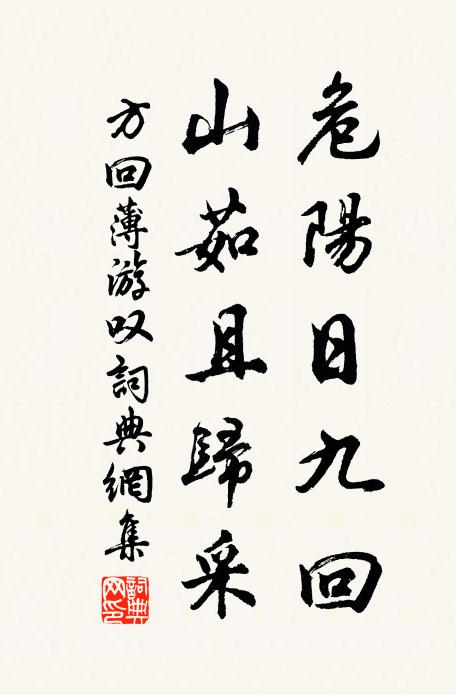 危陽日九回
山茹且歸采
方回薄游叹詞典網集
詞典網印